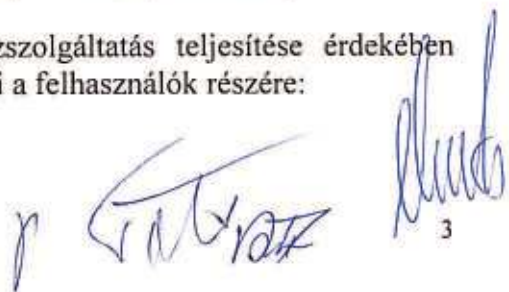 zszolgáltatás teljesítése érdekében
i a felhasználók részére:
3